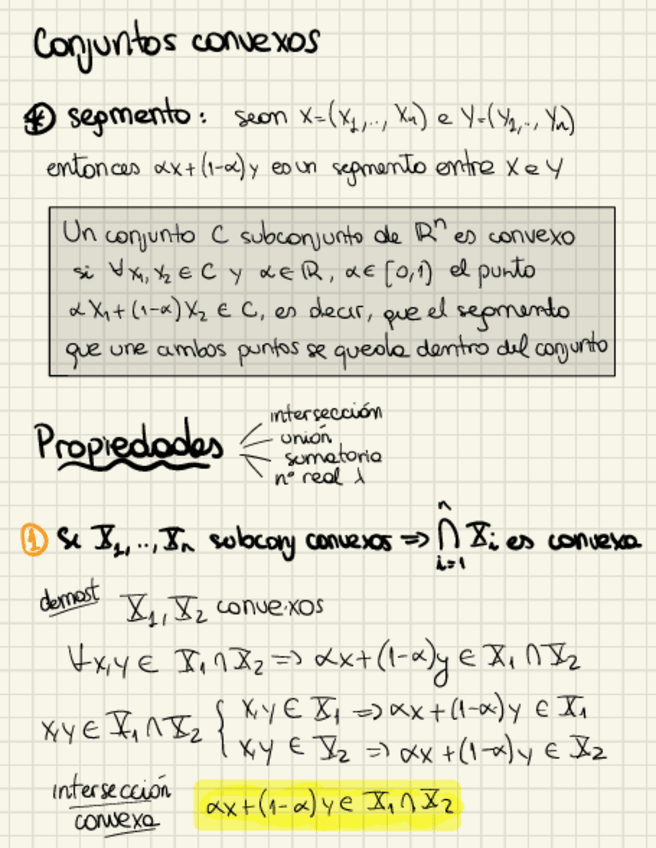 Conjuntos convexos
④ segmento: sean X=(X₁,.., Xn) e Y=(Y₁,.., Yn)
entonces αx+(1-α)y es un segmento entre X e Y
Un conjunto C subconjunto de ℝⁿ es convexo
si ∀x₁,x₂ ∈ C y α∈ℝ, α∈[0,1) el punto
αX₁+(1-α)X₂ ∈ C, es decir, que el segmento
que une ambos puntos se queda dentro del conjunto
Propiedades
intersección
unión
sumatoria
nº real λ
① Si X₁,..,Xn subconj convexos ⇒ ⋂ᵢ₌₁ⁿ Xᵢ es convexa
demost X₁,X₂ convexos
∀x,y ∈ X₁∩X₂ ⇒ αx+(1-α)y ∈ X₁∩X₂
x,y ∈ X₁∩X₂ { x,y ∈ X₁ ⇒ αx+(1-α)y ∈ X₁
x,y ∈ X₂ ⇒ αx+(1-α)y ∈ X₂
intersección
convexa
αx+(1-α)y ∈ X₁∩X₂